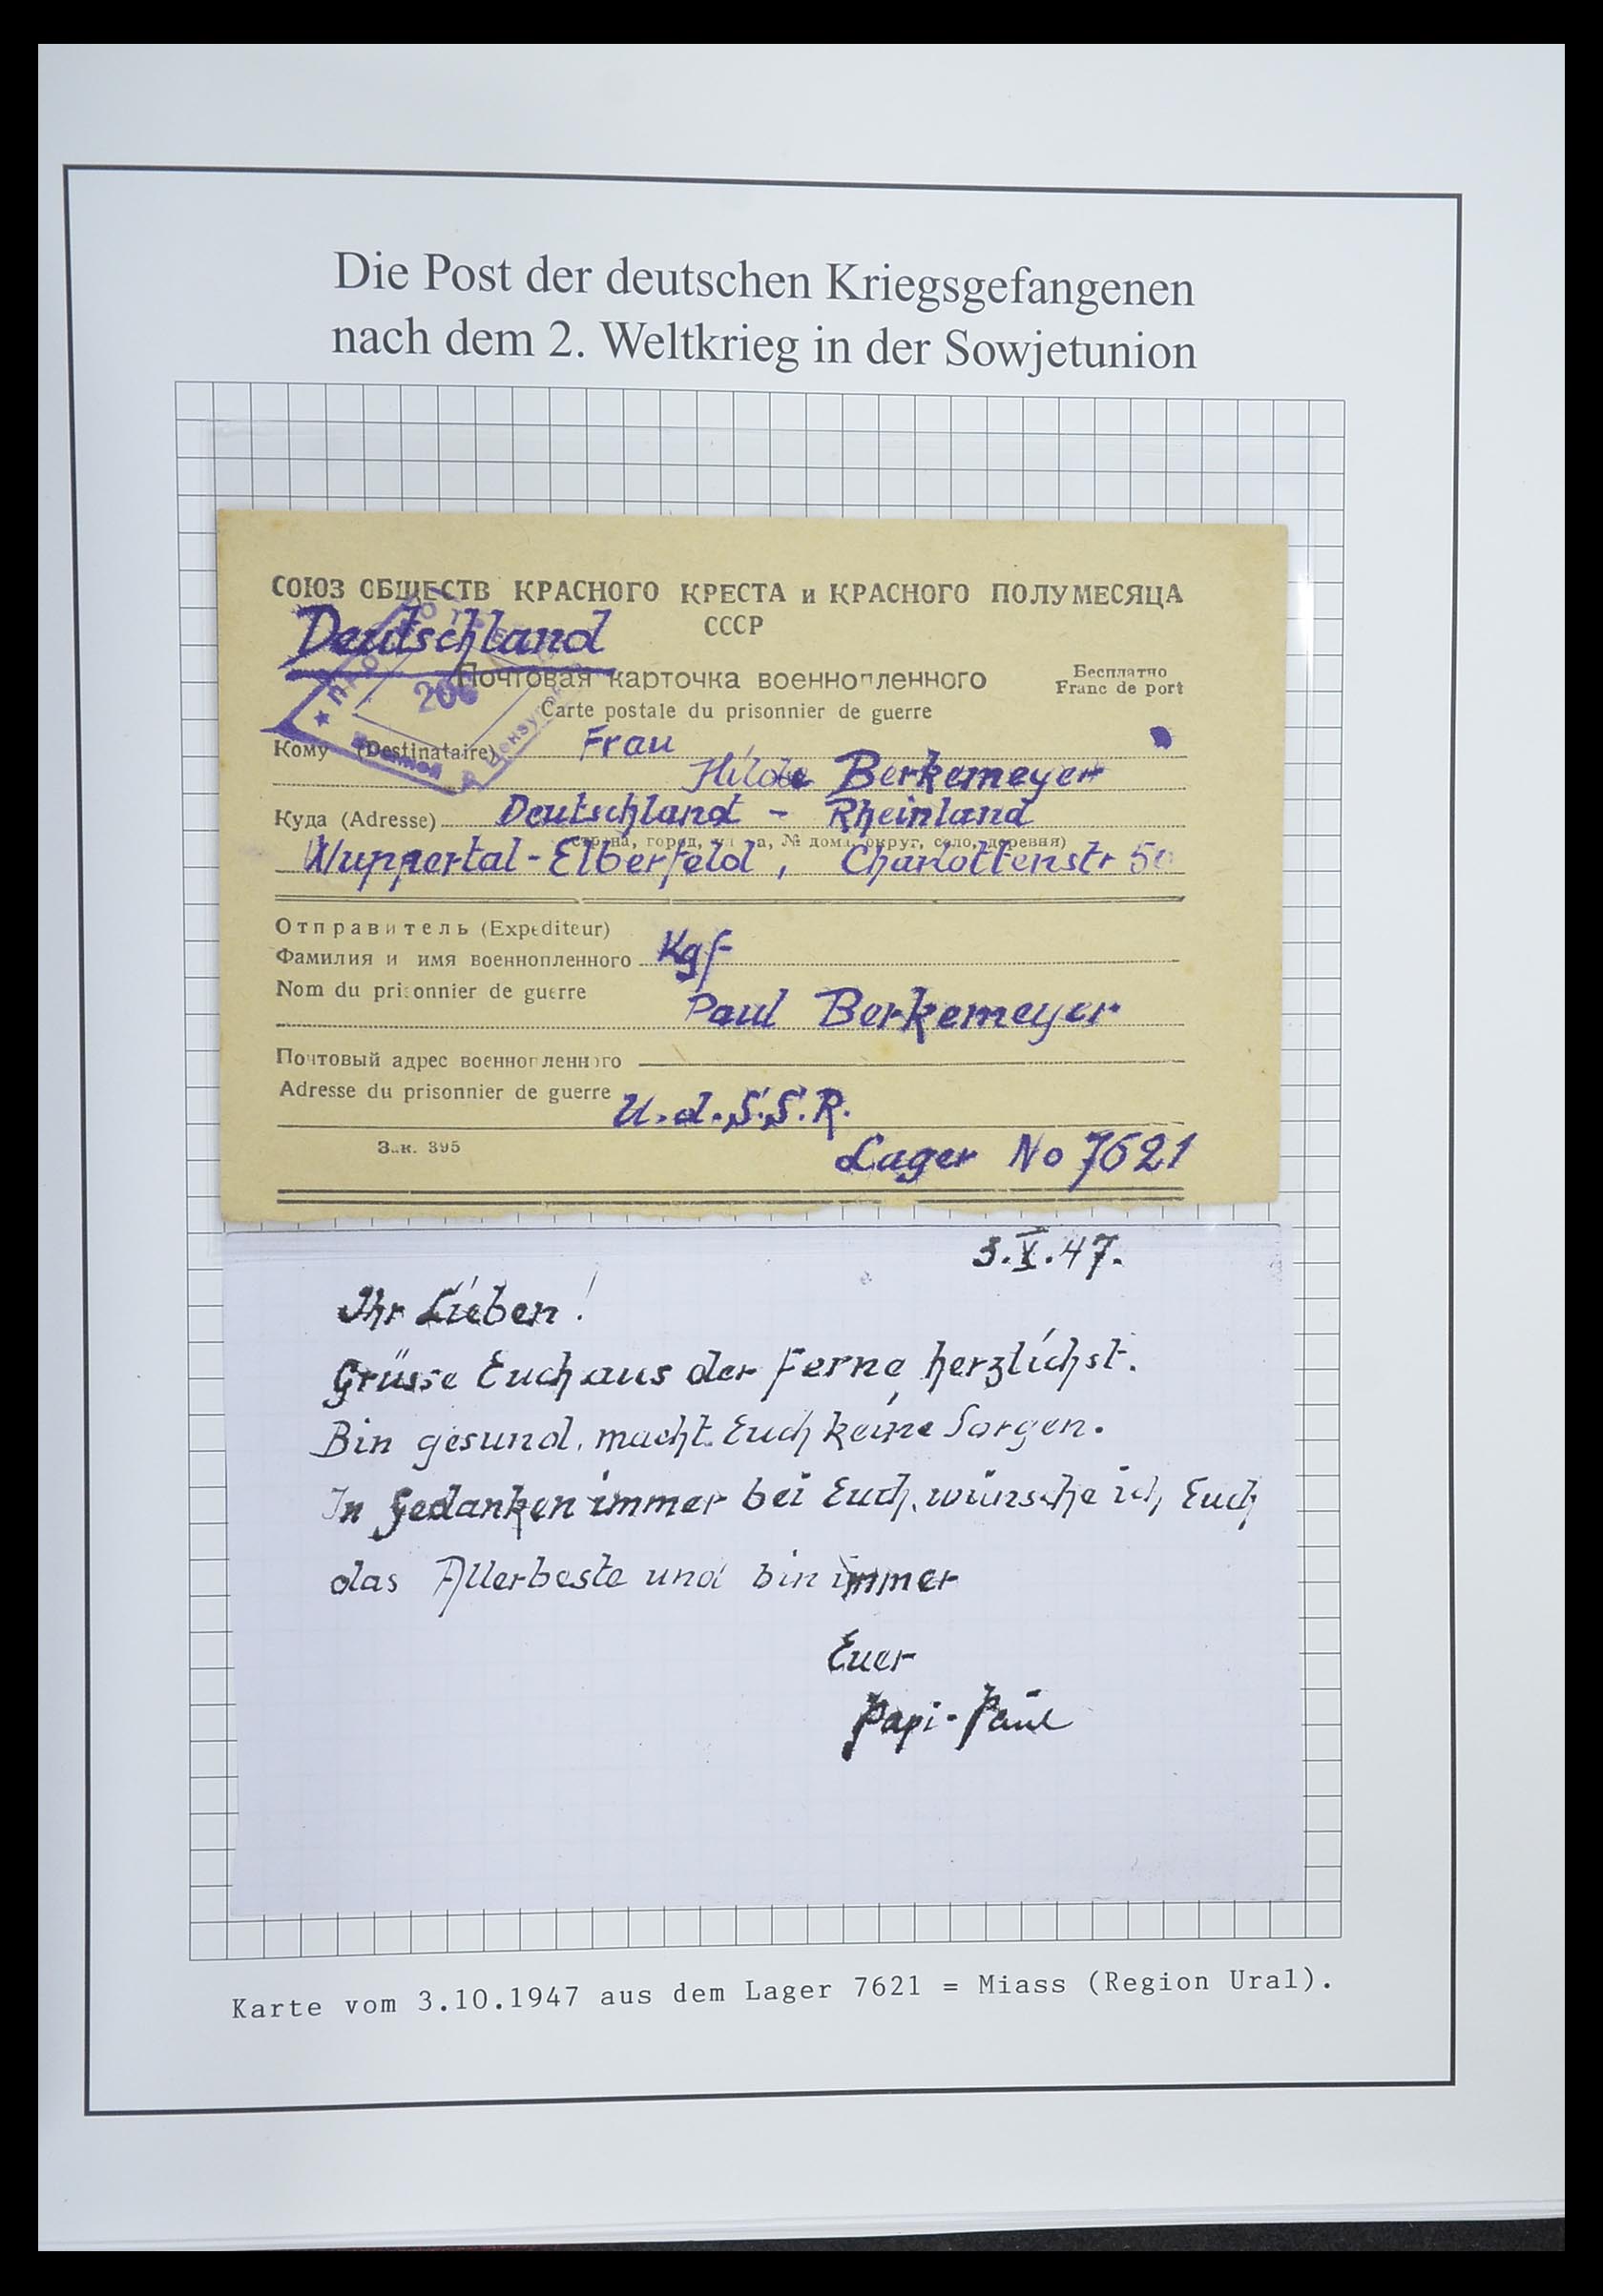 Die Post der deutschen Kriegsgefangenen
nach dem 2. Weltkrieg in der Sowjetunion
СОЮЗ ОБЩЕСТВ КРАСНОГО КРЕСТА и КРАСНОГО ПОЛУМЕСЯЦА
СССР
Deutschland
Почтовая карточка военнопленного
Бесплатно
Franc de port
Carte postale du prisonnier de guerre
Кому (Destinataire) Frau
Hilde Berkemeyer
Куда (Adresse) Deutschland - Rheinland
страна, город, № дома, округ, село, деревня)
Wuppertal-Elberfeld, Charlottenstr 50
Отправитель (Expediteur)
Фамилия и имя военнопленного Kgf
Nom du prisonnier de guerre
Paul Berkemeyer
Почтовый адрес военнопленного
Adresse du prisonnier de guerre U.d.S.S.R.
Зак. 395
Lager No 7621
3.X.47.
Ihr Lieben!
Grüsse Euch aus der Ferne herzlichst.
Bin gesund, macht Euch keine Sorgen.
In Gedanken immer bei Euch, wünsche ich Euch
das Allerbeste und bin immer
Euer
Papi-Paul
Karte vom 3.10.1947 aus dem Lager 7621 = Miass (Region Ural).